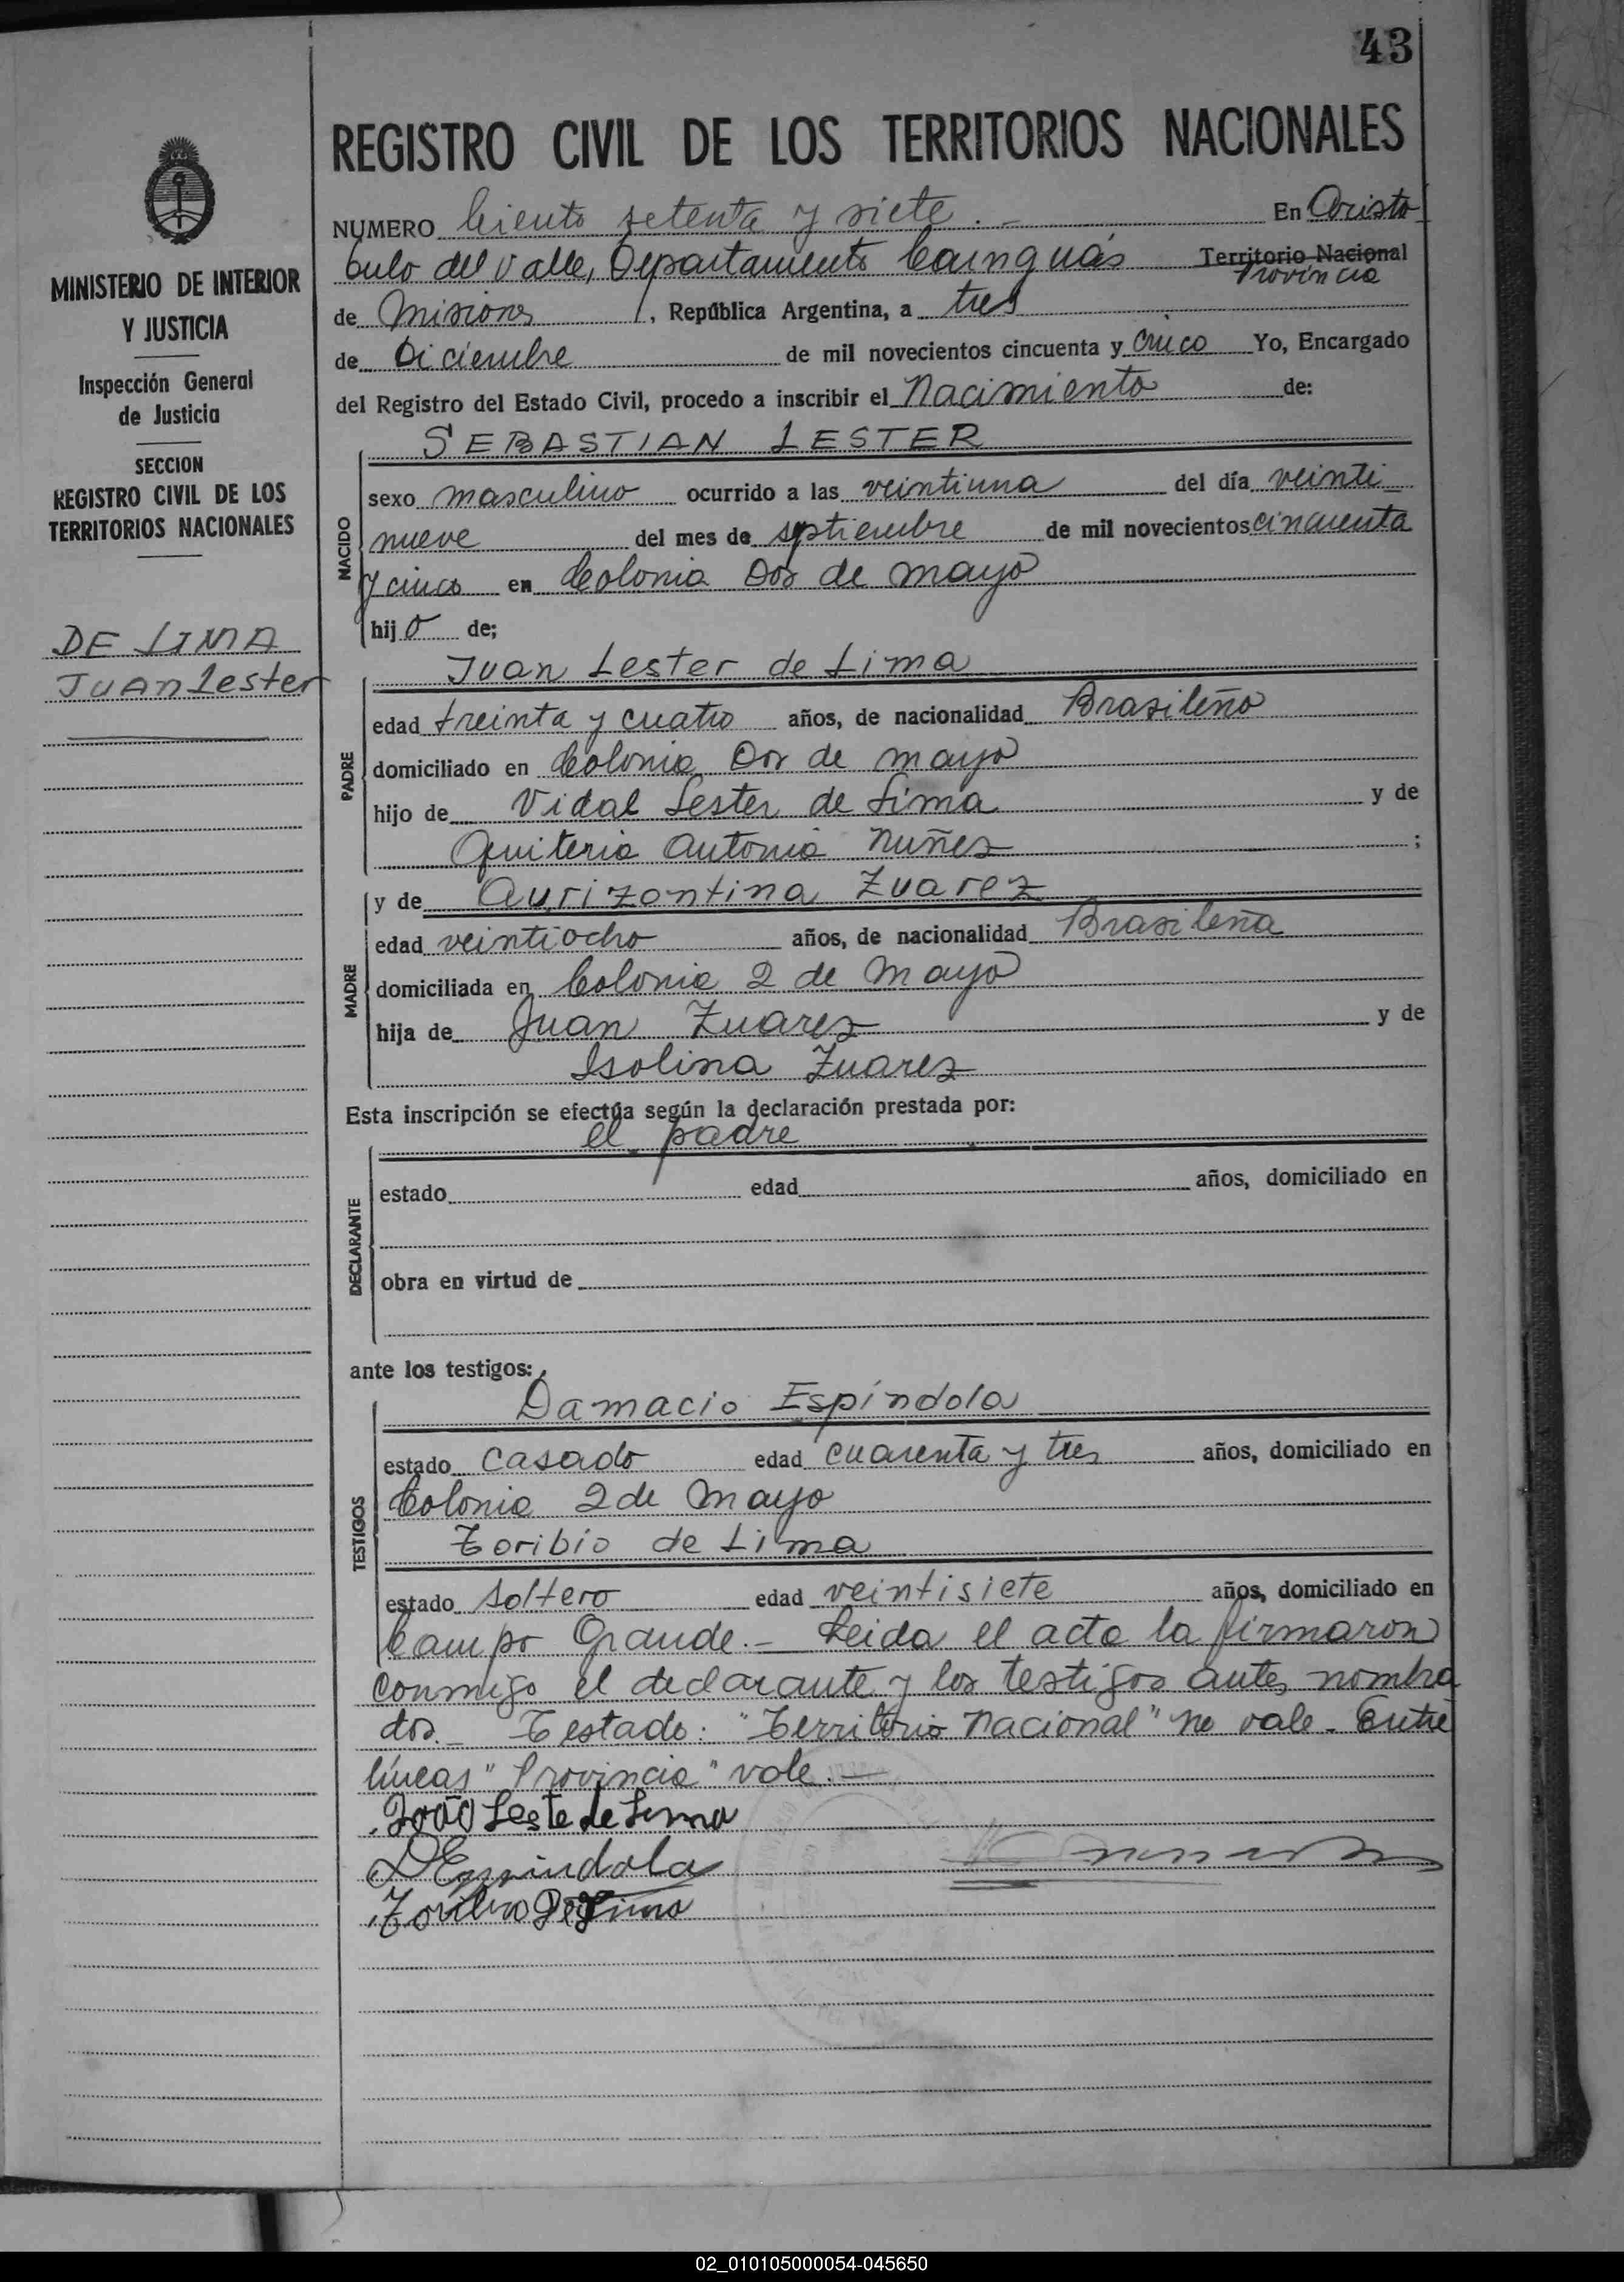 43
REGISTRO CIVIL DE LOS TERRITORIOS NACIONALES
NUMERO Ciento setenta y siete.- En Aristo
bulo del Valle, Departamento Cainguás Territorio Nacional
Provincia
de Misiones, República Argentina, a tres
de Diciembre de mil novecientos cincuenta y cinco Yo, Encargado
del Registro del Estado Civil, procedo a inscribir el Nacimiento de:
SEBASTIAN LESTER
NACIDO
sexo masculino ocurrido a las veintiuna del día veinti
nueve del mes de septiembre de mil novecientos cincuenta
y cinco en Colonia Dos de mayo
hijo de;
Juan Lester de Lima
PADRE
edad treinta y cuatro años, de nacionalidad Brasileño
domiciliado en Colonia Dos de mayo
hijo de Vidal Lester de Lima y de
Quiteria Antonia Nuñez ;
y de Aurizontina Zuarez
MADRE
edad veintiocho años, de nacionalidad Brasileña
domiciliada en Colonia 2 de Mayo
hija de Juan Zuarez y de
Isolina Zuarez
Esta inscripción se efectúa según la declaración prestada por:
el padre
DECLARANTE
estado edad años, domiciliado en
obra en virtud de
ante los testigos:
Damacio Espíndola
TESTIGOS
estado casado edad cuarenta y tres años, domiciliado en
Colonia 2 de Mayo
Toribio de Lima
estado soltero edad veintisiete años, domiciliado en
Campo Grande.- Leida el acta la firmaron
conmigo el declarante y los testigos antes nombra
dos.- Testado: "Territorio Nacional" no vale - Entre
líneas "Provincia" vale.-
João Leste de Lima
DEspindola
Toribio De Lima
MINISTERIO DE INTERIOR
Y JUSTICIA
Inspección General
de Justicia
SECCION
REGISTRO CIVIL DE LOS
TERRITORIOS NACIONALES
DE LIMA
Juan Lester
02_010105000054-045650